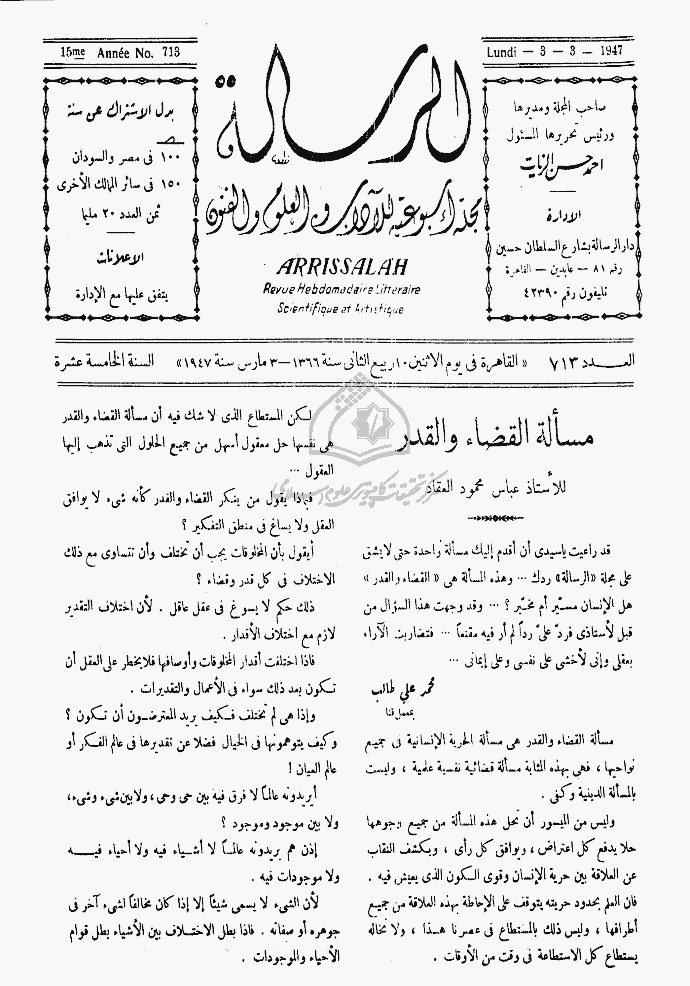 15me Année No. 713
Lundi — 3 — 3 — 1947
الرسالة
مجلة أسبوعية للآداب والعلوم والفنون
ARRISSALAH
Revue Hebdomadaire Litteraire
Scientifique et Artistique
صاحب المجلة ومديرها
ورئيس تحريرها المسئول
احمد حسن الزيات
الإدارة
دار الرسالة بشارع السلطان حسين
رقم ٨١ — عابدين — القاهرة
تليفون رقم ٤٢٣٩٠
بدل الاشتراك عن سنة
١٠٠ فى مصر والسودان
١٥٠ فى سائر الممالك الأخرى
ثمن العدد ٢٠ مليما
الاعلانات
يتفق عليها مع الإدارة
العـــدد ٧١٣ « القاهرة فى يوم الاثنين ١٠ ربيع الثانى سنة ١٣٦٦ — ٣ مارس سنة ١٩٤٧ » السنة الخامسة عشرة
مسألة القضاء والقدر
للأستاذ عباس محمود العقاد
قد راعيت ياسيدى أن أقدم إليك مسألة واحدة حتى لايشق
على مجلة «الرسالة» ردك ... وهذه المسألة هى « القضاء والقدر »
هل الإنسان مسيّر أم مخيّر ؟ ... وقد وجهت هذا السؤال من
قبل لأستاذى فردّ علىّ رداً لم أر فيه مقنعاً ... فتضاربت الآراء
بعقلى وإنى لأخشى على نفسى وعلى إيمانى ...
محمد على طالب
مسألة القضاء والقدر هى مسألة الحرية الإنسانية فى جميع
نواحيها ، فهى بهذه المثابة مسألة قضائية نفسية علمية ، وليست
بالمسألة الدينية وكفى .
وليس من الميسور أن تحل هذه المسألة من جميع وجوهها
حلا يدفع كل اعتراض ، ويوافق كل رأى ، ويكشف النقاب
عن العلاقة بين حرية الإنسان وقوى الكون الذى يعيش فيه .
فان العلم بحدود حريته يتوقف على الإحاطة بهذه العلاقة من جميع
أطرافها ، وليس ذلك بالمستطاع فى عصرنا هـذا ، ولا نخاله
يستطاع كل الاستطاعة فى وقت من الأوقات .
لكن المستطاع الذى لا شك فيه أن مسألة القضاء والقدر
هى نفسها حل معقول أسهل من جميع الحلول التى تذهب إليها
العقول ...
فماذا يقول من ينكر القضاء والقدر كأنه شىء لا يوافق
العقل ولا يساغ فى منطق التفكير ؟
أيقول بأن المخلوقات يجب أن تختلف وأن تتساوى مع ذلك
الاختلاف فى كل قدر وقضاء ؟
ذلك حكم لا يسوغ فى عقل عاقل . لأن اختلاف التقدير
لازم مع اختلاف الأقدار .
فاذا اختلفت أقدار المخلوقات وأوصافها فلا يخطر على العقل أن
تكون بعد ذلك سواء فى الأعمال والتقديرات .
وإذا هى لم تختلف فكيف يريد المعترضون أن تكون ؟
وكيف يتوهمونها فى الخيال فضلا عن تقديرها فى عالم الفكر أو
عالم العيان !
أيريدونه عالماً لا فرق فيه بين حى وحى ، ولابين شىء وشىء،
ولا بين موجود وموجود ؟
إذن هم يريدونه عالمـاً لا أشياء فيه ولا أحياء فيـه
ولا موجودات فيه .
لأن الشىء لا يسمى شيئاً إلا إذا كان مخالفاً لشىء آخر فى
جوهره أو صفاته . فاذا بطل الاختـلاف بين الأشياء بطل قوام
الأحياء والموجودات .
مركز تحقيقات كامپيوترى علوم اسلامى